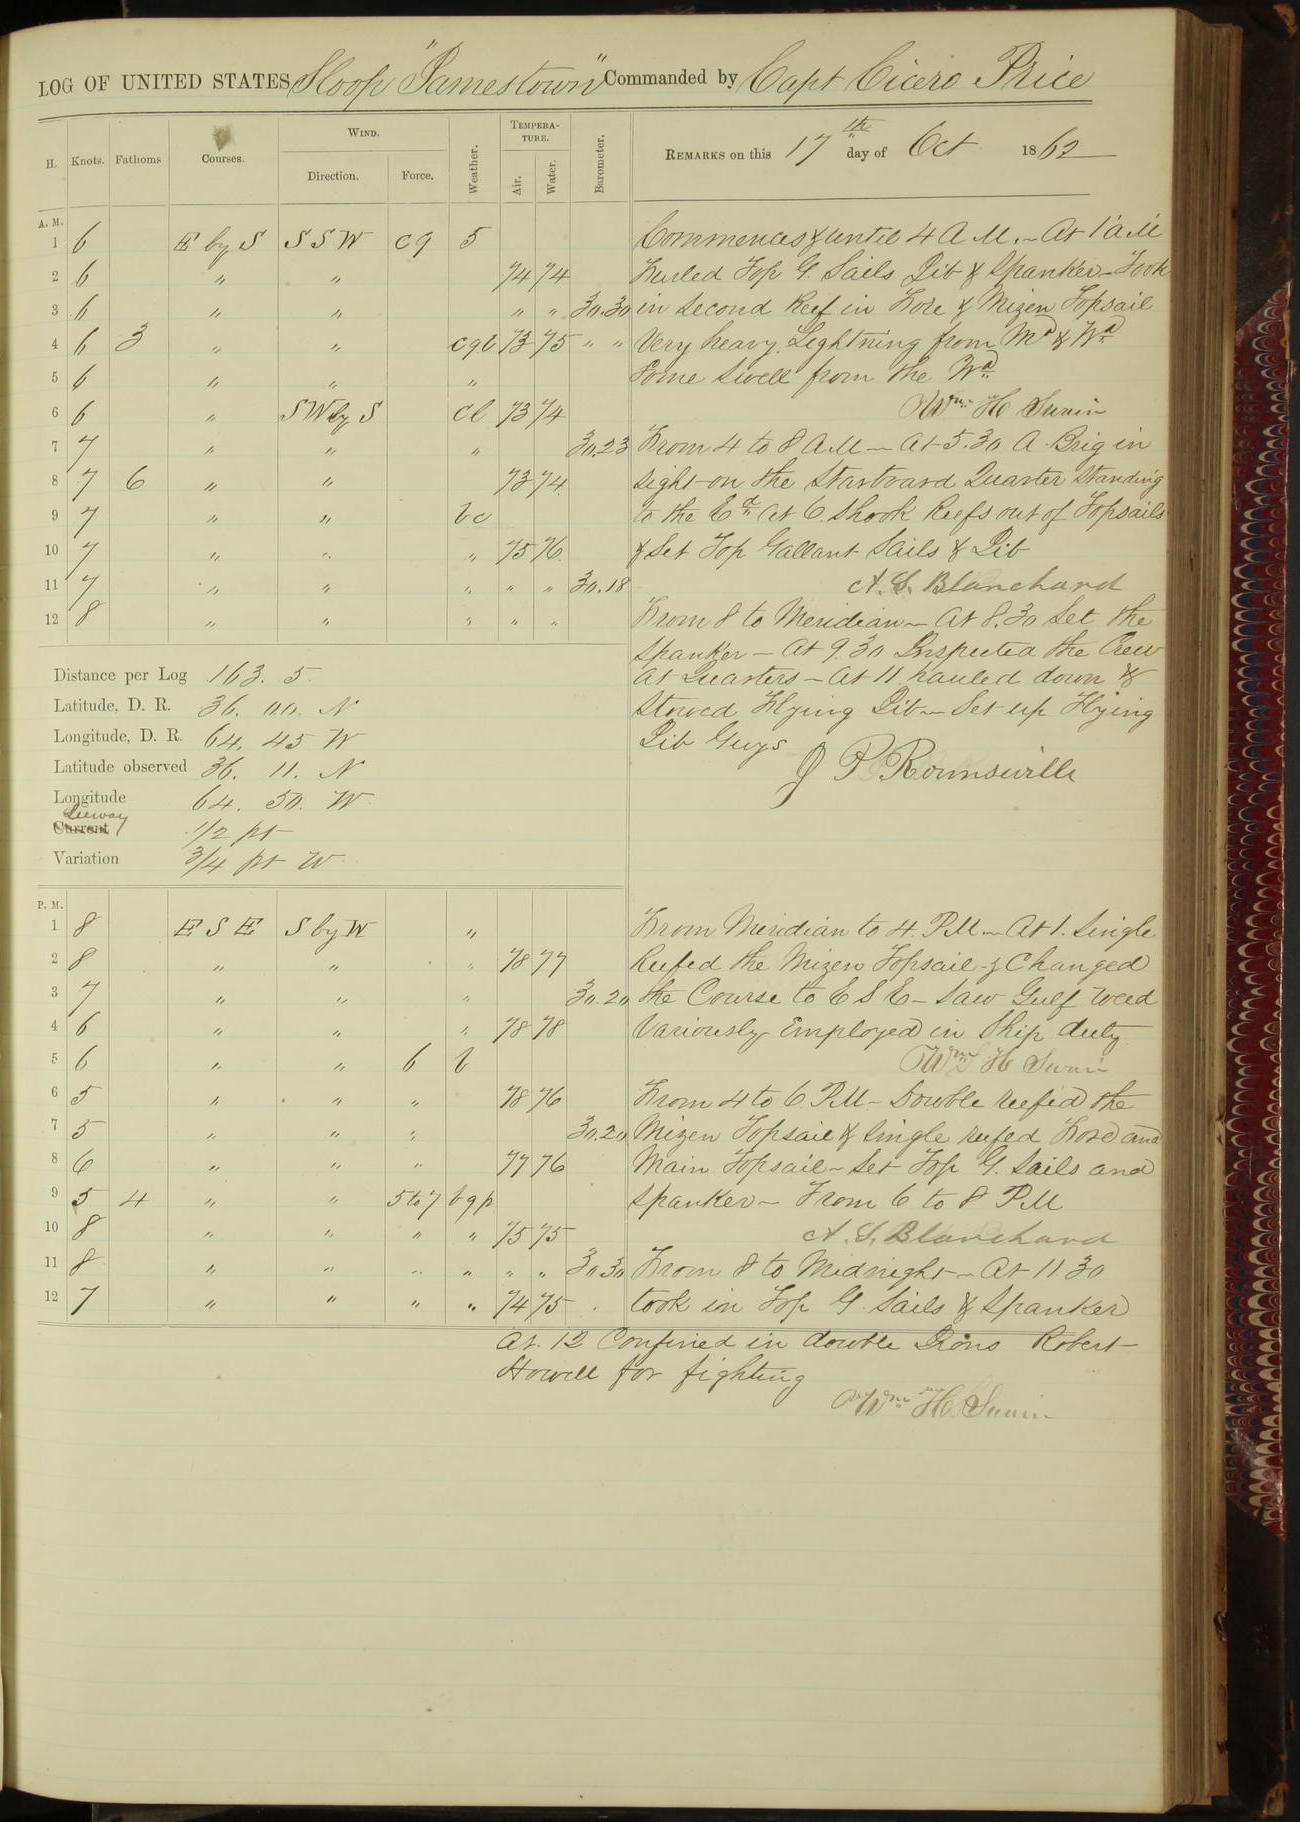 LOG OF UNITED STATES Sloop "Jamestown" Commanded by Capt Cicero Price
H. Knots. Fathoms Courses. WIND. Direction. Force. Weather. TEMPERATURE. Air. Water. Barometer. REMARKS on this 17th day of Oct 1862
A. M.
1 6 E by S S S W c q 5 Commences & until 4 A M. – At 1 A M
2 6 " " 74 74 Furled Top G. Sails Jib & Spanker – Took
3 6 " " " " 30.30 in Second Reef in Fore & Mizen Topsail
4 6 3 " " c q l 73 75 " " Very heavy Lightning from Nd & Wd
5 6 " " " Some Swell from the Wd
6 6 " SW by S c l 73 74 Wm H
7 7 " " " 30.23 From 4 to 8 A M – At 5.30 A Brig in
8 7 6 " " 73 74 Sight on the Starboard Quarter Standing
9 7 " " b c to the Ed At 6 Shook Reefs out of Topsails
10 7 " " " 75 76 & Set Top Gallant Sails & Jib
11 7 " " " " " 30.18 A. S. Blanchard
12 8 " " " " " From 8 to Meridian – At 8.30 Set the
Spanker – At 9.30 Inspected the Crew
Distance per Log 163. 5 at Quarters – At 11 hauled down &
Latitude, D. R. 36. 00. N Stowed Flying Jib – Set up Flying
Longitude, D. R. 64. 45 W Jib Guys
Latitude observed 36. 11. N J P Rounseville
Longitude 64. 50. W
Leeway
Current 1/2 pt
Variation 3/4 pt W
P. M.
1 8 E S E S by W " From Meridian to 4 P M – At 1. Single
2 8 " " " 78 77 Reefed the Mizen Topsail & Changed
3 7 " " " 30.20 the Course to E S E – Saw Gulf Weed
4 6 " " " 78 78 Variously Employed in Ship duty
5 6 " " 6 b Wm H
6 5 " " " 78 76 From 4 to 6 P M – Double reefed the
7 5 " " " 30.20 Mizen Topsail & Single reefed Fore and
8 6 " " " 77 76 Main Topsail – Set Top G. Sails and
9 5 4 " " 5 to 7 b q p Spanker – From 6 to 8 P M
10 8 " " " " 75 75 A. S. Blanchard
11 8 " " " " " " 30 30 From 8 to Midnight – At 11 30
12 7 " " " " 74 75 took in Top G Sails & Spanker
At. 12 Confined in double Irons Robert
Howell for fighting
Wm H.